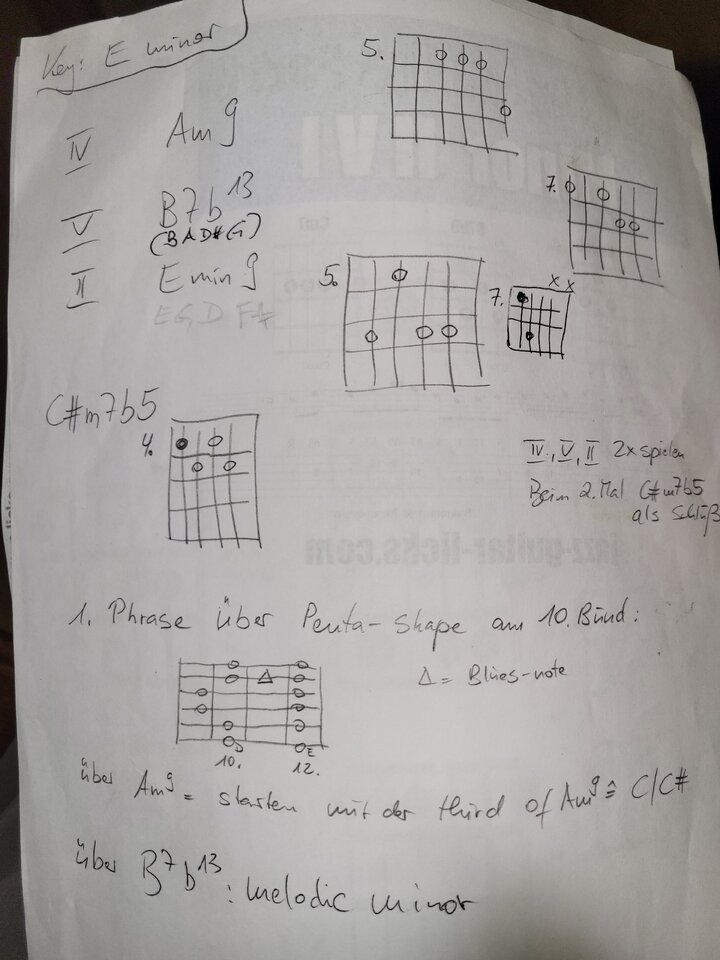 Key: E minor
5.
IV Am9
7.
V B7b13
(BAD#G)
II Emin9
5.
7.
X X
EG, D F#
C#m7b5
4.
IV, V, II 2x spielen
Beim 2. Mal C#m7b5
als Schluß
1. Phrase über Penta-Shape am 10. Bund:
Δ = Blues-note
D E
10. 12.
über Am9 = starten mit der third of Am9 ≙ C/C#
über B7b13: melodic minor